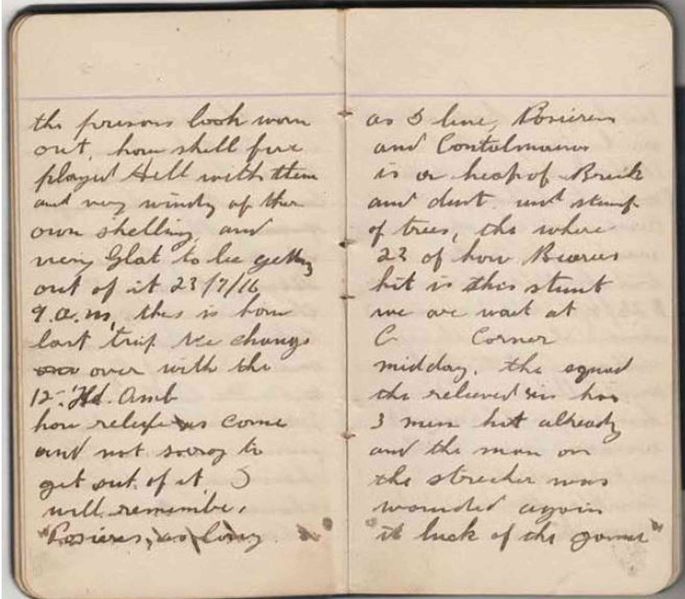 the prisons look worn
out, how shell fire
played Hell with them
and very windy of ther
own shelling, and
very Glat to be getting
out of it 23/7/16
9.a.m, this is how
last trip we change
over with the
12th Fd. Amb
how relief as come
and not sorrey to
get out of it. I
will remember
Posieres, as long
as I live, Posieres
and Contalmaison
is a heap of Brick
and dust. and stump
of trees, the where
22 of how Bearers
hit is this stunt
we are wait at
C Corner
midday. the squad
the relieved is has
3 men hit already
and the man on
the strecher was
wounded again
"it luck of the game"